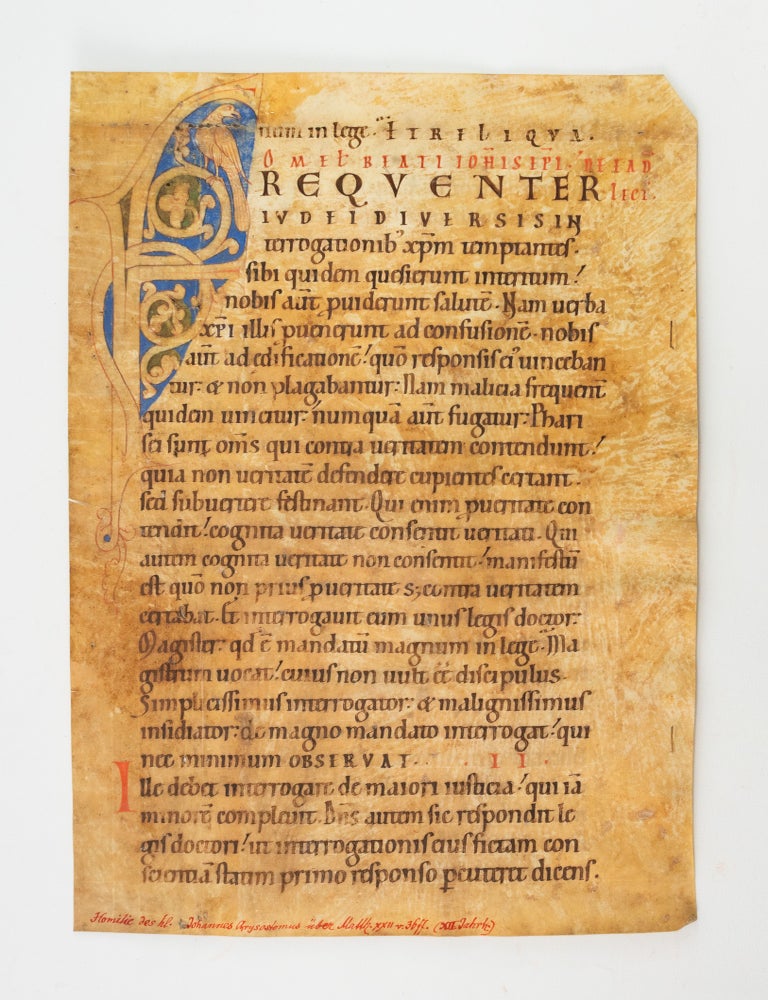 num in lege· Et reliqua.
OMEL BEATI IOHIS EPI· DE EAD
REQVENTER lect.
IVDEI DIVERSIS IN
terrogationib' xp̄m temptantes·
sibi quidem quesierunt interitum!
nobis aūt ꝓuiderunt salutē· Nam uerba
xp̄i illis puenerunt ad confusionē· nobis
aūt ad edificationē! quō responsis ei' uinceban
tur· & non plagabantur: Nam malicia frequent̄
quidem uincitur· numquā aūt fugatur: Phari
sei sunt om̄s qui contra ueritatem contendunt!
quia non ueritatē defendere cupientes certant·
sed subuertere festinant· Qui enim ꝓ ueritate con
tendit! cognita ueritate consentit ueritati· Qui
autem cognita ueritate non consentit! manifestū
est quō non prius ꝓ ueritate s; contra ueritatem
certabat· Et interrogauit eum unus legis doctor:
Magister· qd ē mandatū magnum in lege· Ma
gistrum uocat! cuius non uult eē discipulus·
Simplicissimus interrogator· & malignissimus
insidiator: de magno mandato interrogat! qui
nec minimum OBSERVAT· II·
Ille debet interrogare de maiori iusticia! qui iā
minorē compleuit· Dn̄s autem sic respondit le
gis doctori! ut interrogationis eius fictam con
scientiā statim primo responso ꝑcuteret dicens·
Homilie des hl. Johannes Crysostomus über Matth. XXII v. 36ff. (XII Jahrh.)